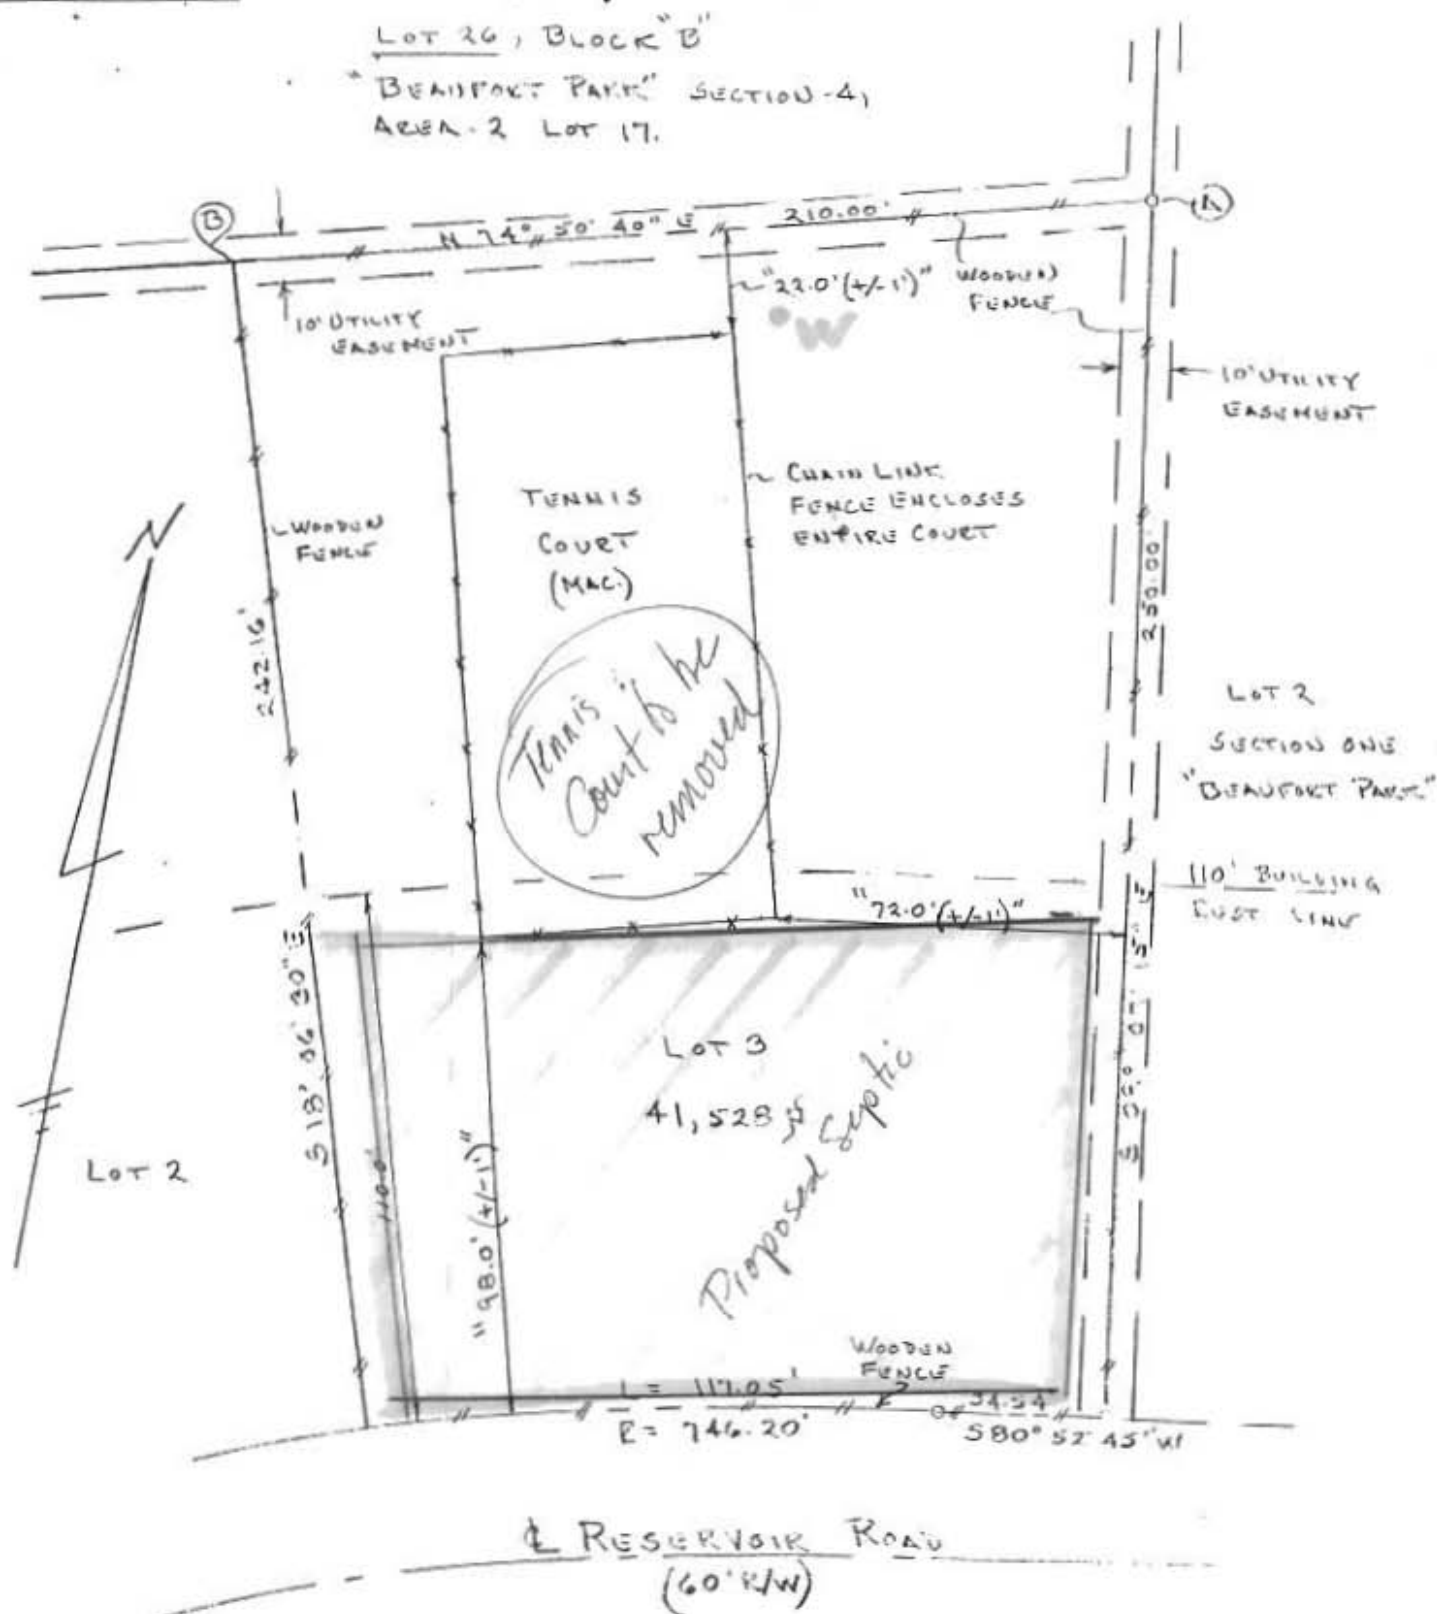 LOT 26, BLOCK "B"
"BEAUFORT PARK" SECTION-4,
AREA-2 LOT 17.
B
N 74° 50' 40" E
210.00'
A
10' UTILITY
EASEMENT
"22.0' (+/-1')"
W
WOODEN
FENCE
10' UTILITY
EASEMENT
N
WOODEN
FENCE
TENNIS
COURT
(MAC.)
CHAIN LINK
FENCE ENCLOSES
ENTIRE COURT
242.16'
250.00'
Tennis
Court to be
removed
LOT 2
SECTION ONE
"BEAUFORT PARK"
110' BUILDING
"72.0' (+/-1')"
LINE
S 18° 06' 30" E
LOT 3
41,528
Proposed Septic
LOT 2
110.0'
"98.0' (+/-1')"
WOODEN
FENCE
L = 117.05'
R = 746.20'
34.54
S 80° 52' 45" W
℄ RESERVOIR ROAD
(60' R/W)